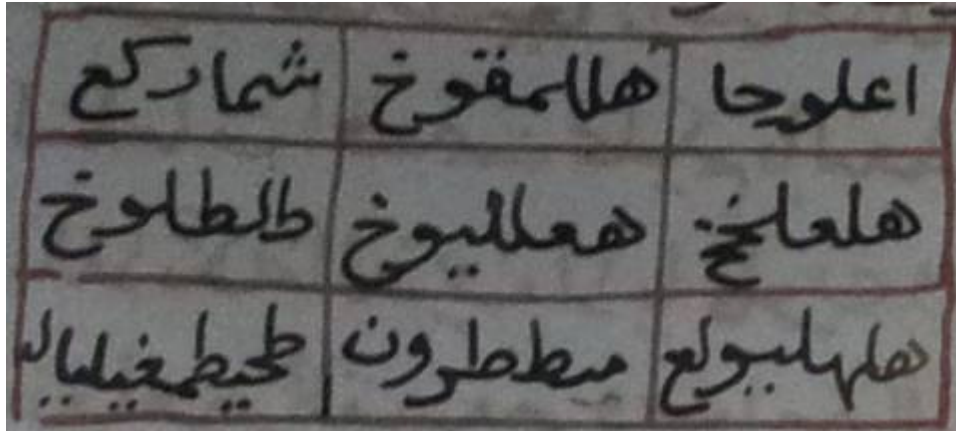 اعلوجا هللمقوخ شمارکع
هلعلخخ هعلليوخ طلطلوخ
هلهليولع ميططرون طحيطمغيليال